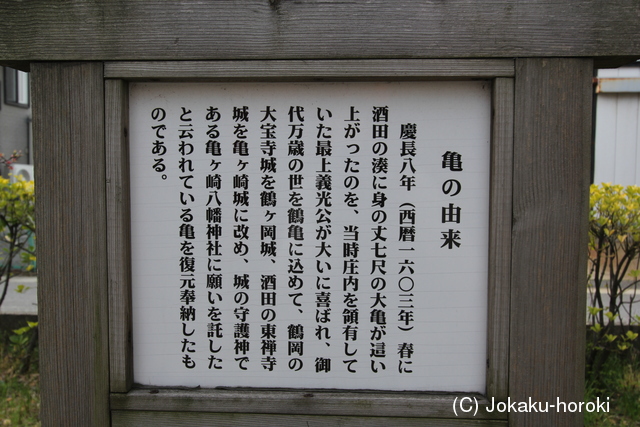 亀の由来
慶長八年（西暦一六〇三年）春に
酒田の湊に身の丈七尺の大亀が這い
上がったのを、当時庄内を領有して
いた最上義光公が大いに喜ばれ、御
代万歳の世を鶴亀に込めて、鶴岡の
大宝寺城を鶴ヶ岡城、酒田の東禅寺
城を亀ヶ崎城に改め、城の守護神で
ある亀ヶ崎八幡神社に願いを託した
と云われている亀を復元奉納したも
のである。
(C) Jokaku-horoki